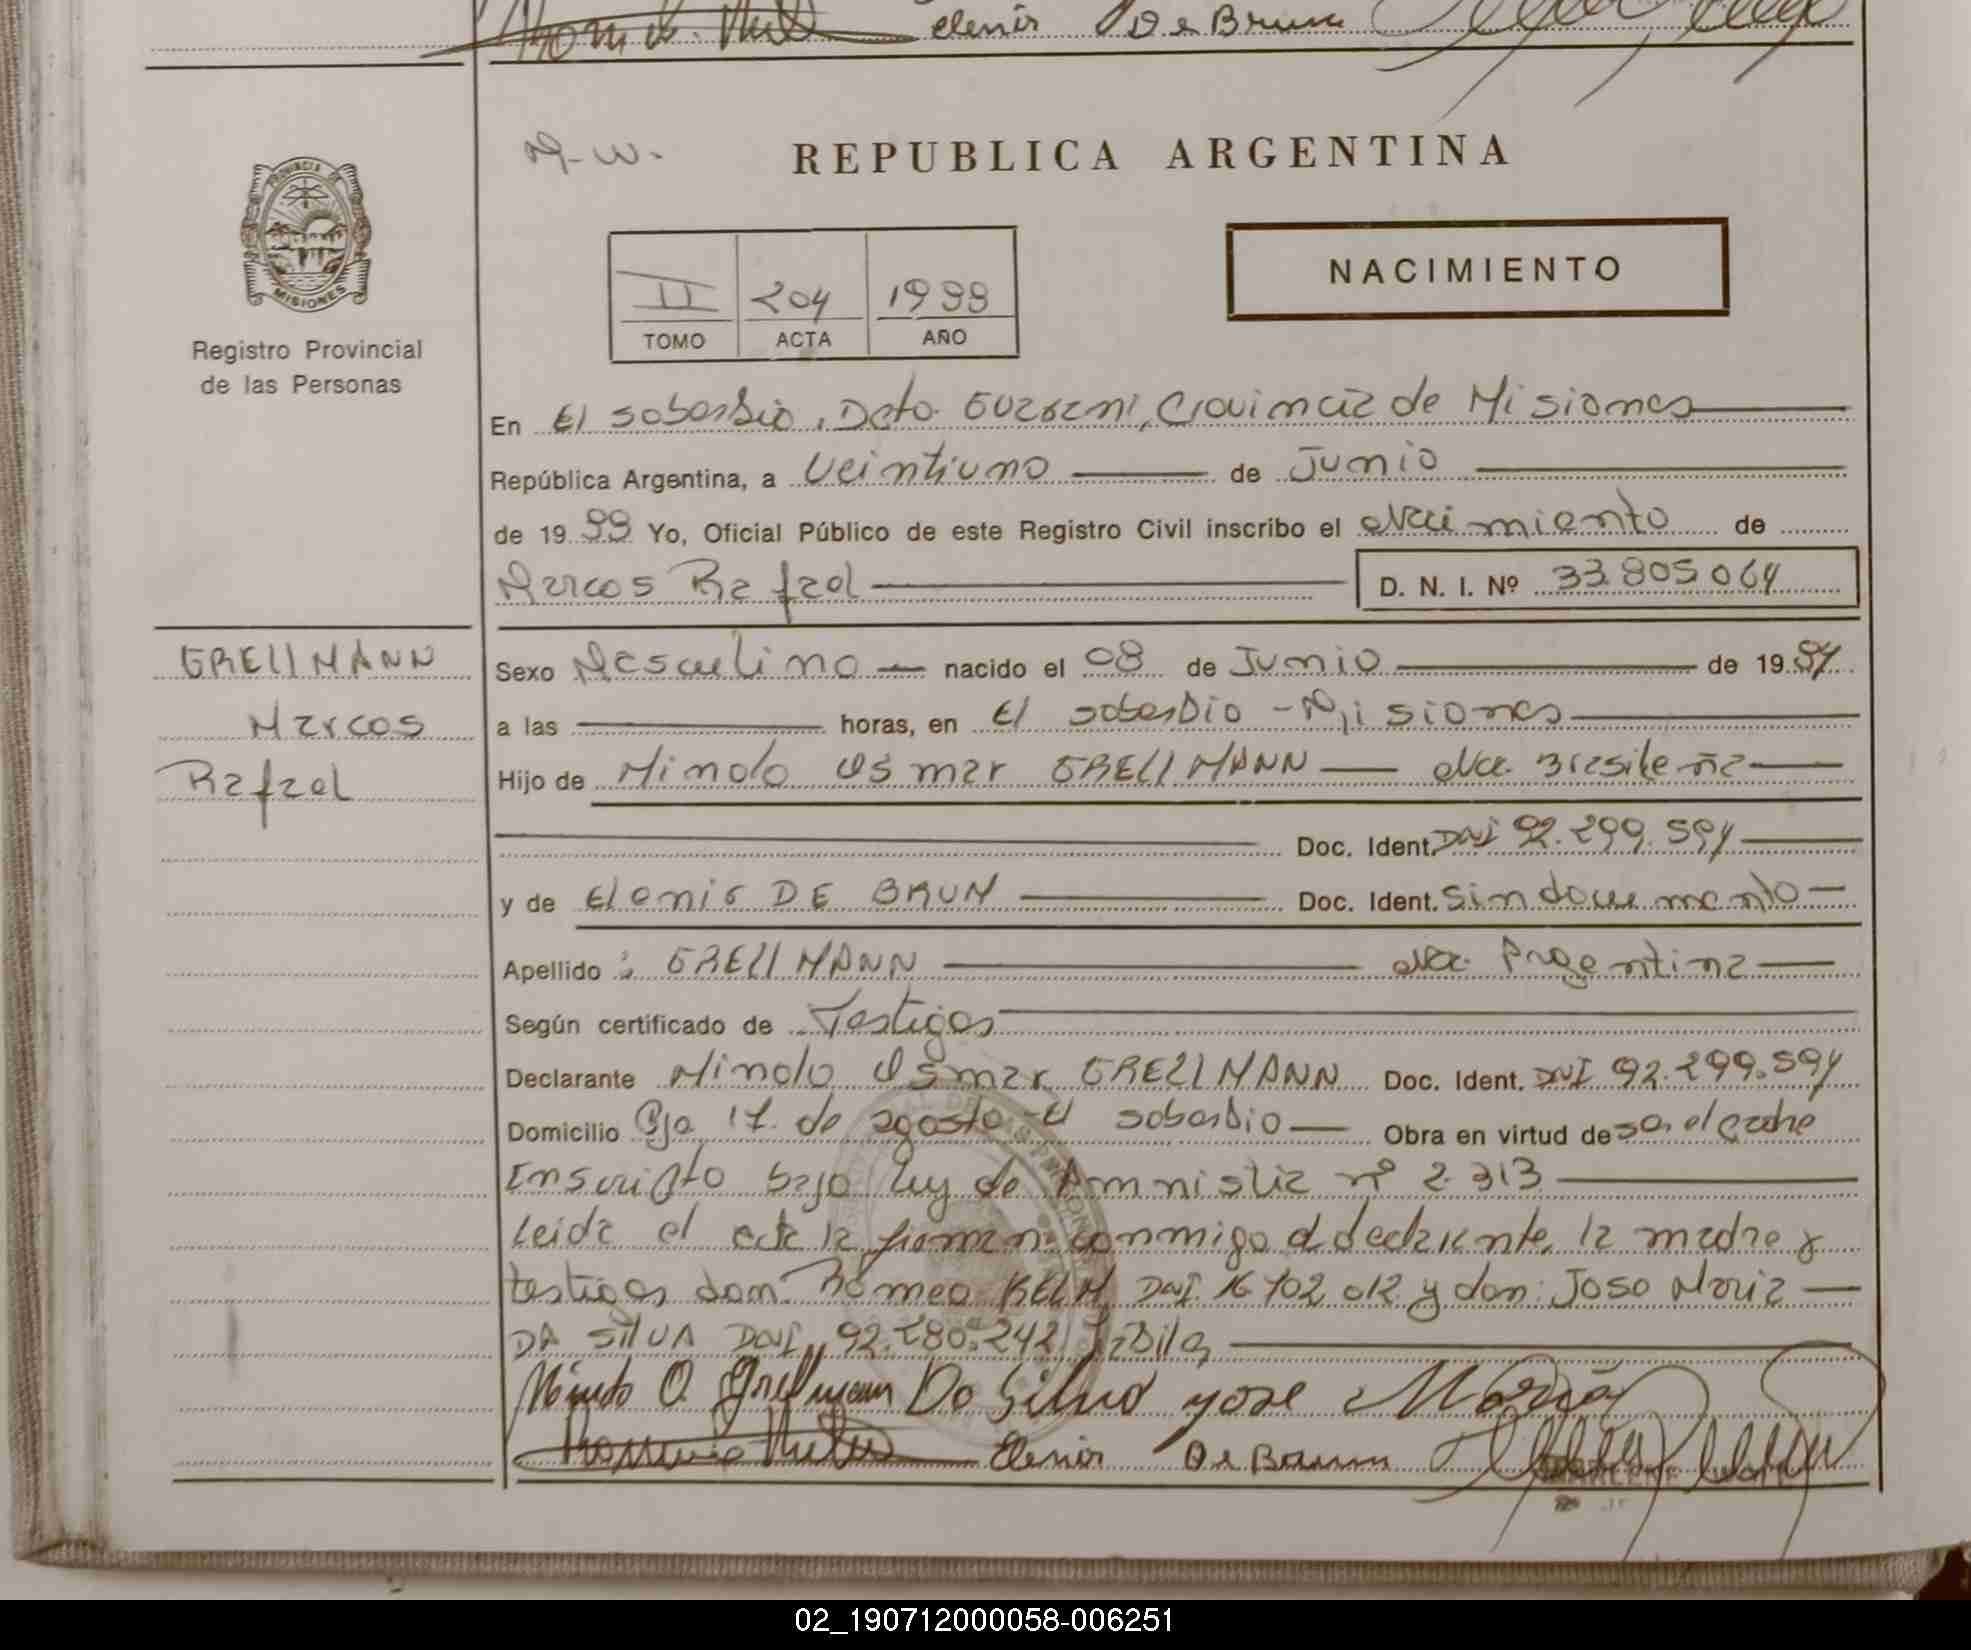 Elenir De Brum
PROVINCIA DE
MISIONES
Registro Provincial
de las Personas
M-W.
REPUBLICA ARGENTINA
NACIMIENTO
II 204 1999
TOMO ACTA AÑO
En El soberbio, Dpto. Guarani, Provincia de Misiones
República Argentina, a Veintiuno de Junio
de 1999 Yo, Oficial Público de este Registro Civil inscribo el Nacimiento de
Marcos Rafael D. N. I. Nº 33.805.064
GRELLMANN
Marcos
Rafael
Sexo Masculino nacido el 08 de Junio de 19
a las horas, en El soberbio - Misiones
Hijo de Mindo Osmar GRELLMANN Nac. Brasileña
Doc. Ident. DNI 92.299.594
y de Elenir DE BRUM Doc. Ident. Sin documento
Apellido : GRELLMANN Nac. Argentina
Según certificado de Testigos
Declarante Mindo Osmar GRELLMANN Doc. Ident. DNI 92.299.594
Domicilio Pje 17 de agosto - El soberbio Obra en virtud de ser el padre
Inscripto bajo ley de Amnistia nº 2.313
Leida el acta la firman conmigo el declarante, la madre y
testigos don: Romeo KELM, DNI 16 702 012 y don: Jose Maria
DA SILVA DNI 92.280.242
Mindo O. Grellmann Da Silva Jose Maria
Elenir De Brum
02_190712000058-006251